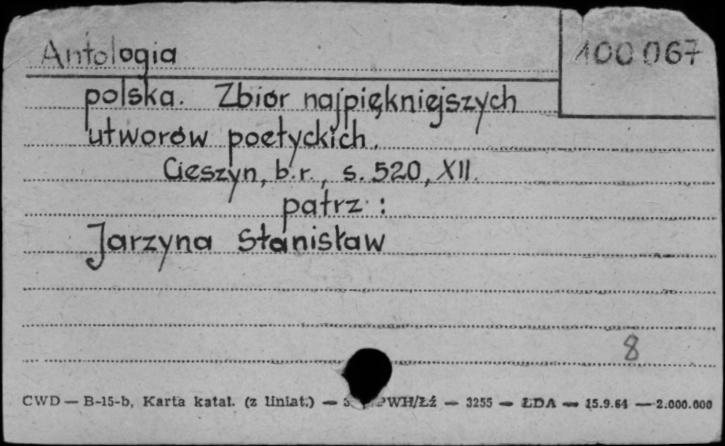 Antologia 100 067
polska. Zbiór najpiękniejszych
utworów poetyckich.
Cieszyn, b.r., s. 520, XII.
patrz :
Jarzyna Stanisław
8
CWD — B-15-b, Karta katal. (z liniat.) — PWH/Łź — 3255 — ŁDA — 15.9.64 — 2.000.000